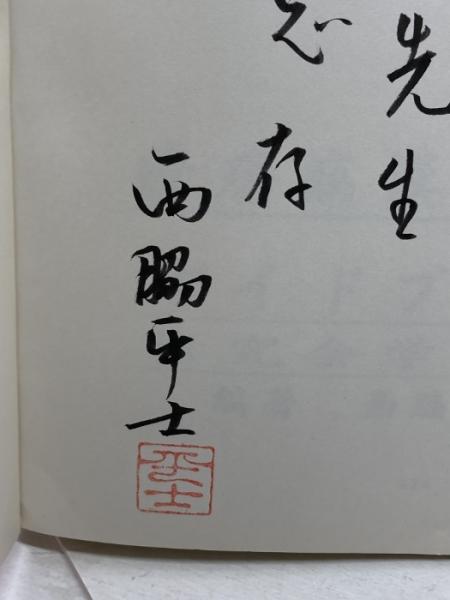 先生
存
西脇平士
平士